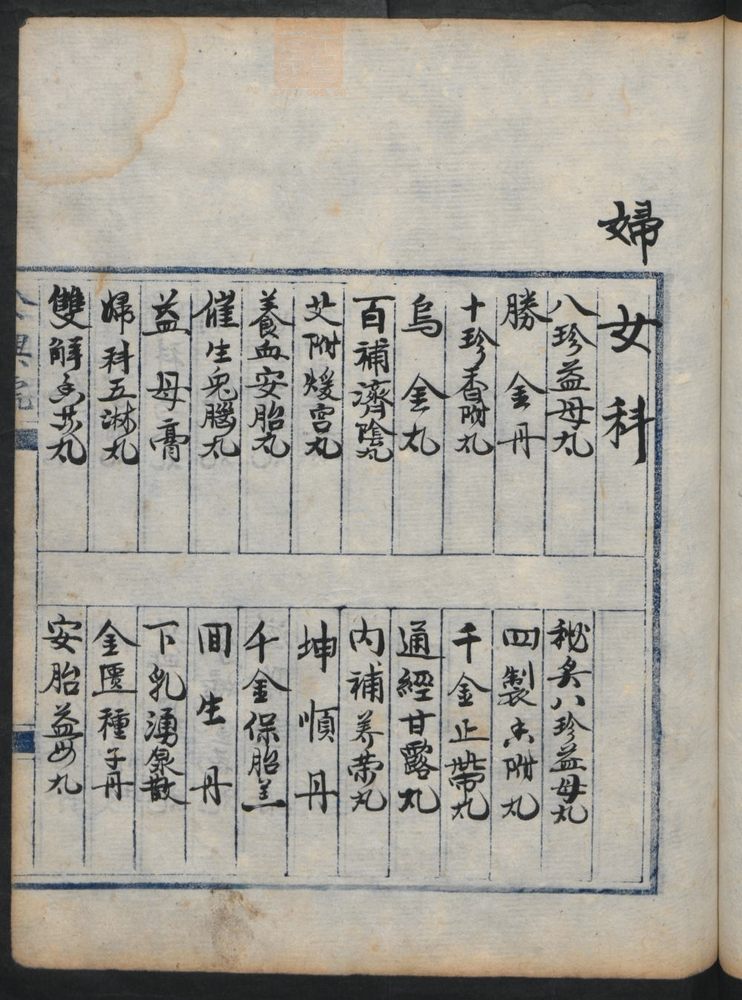 婦女科
八珍益母丸
勝金丹
十珍香附丸
烏金丸
百補濟陰丸
艾附煖宮丸
養血安胎丸
催生兔腦丸
益母膏
婦科五淋丸
雙解
秘炙八珍益母丸
四製香附丸
千金止帶丸
通經甘露丸
內補养荣丸
坤順丹
千金保胎羔
回生丹
下乳湧泉散
金匱種子丹
安胎益母丸